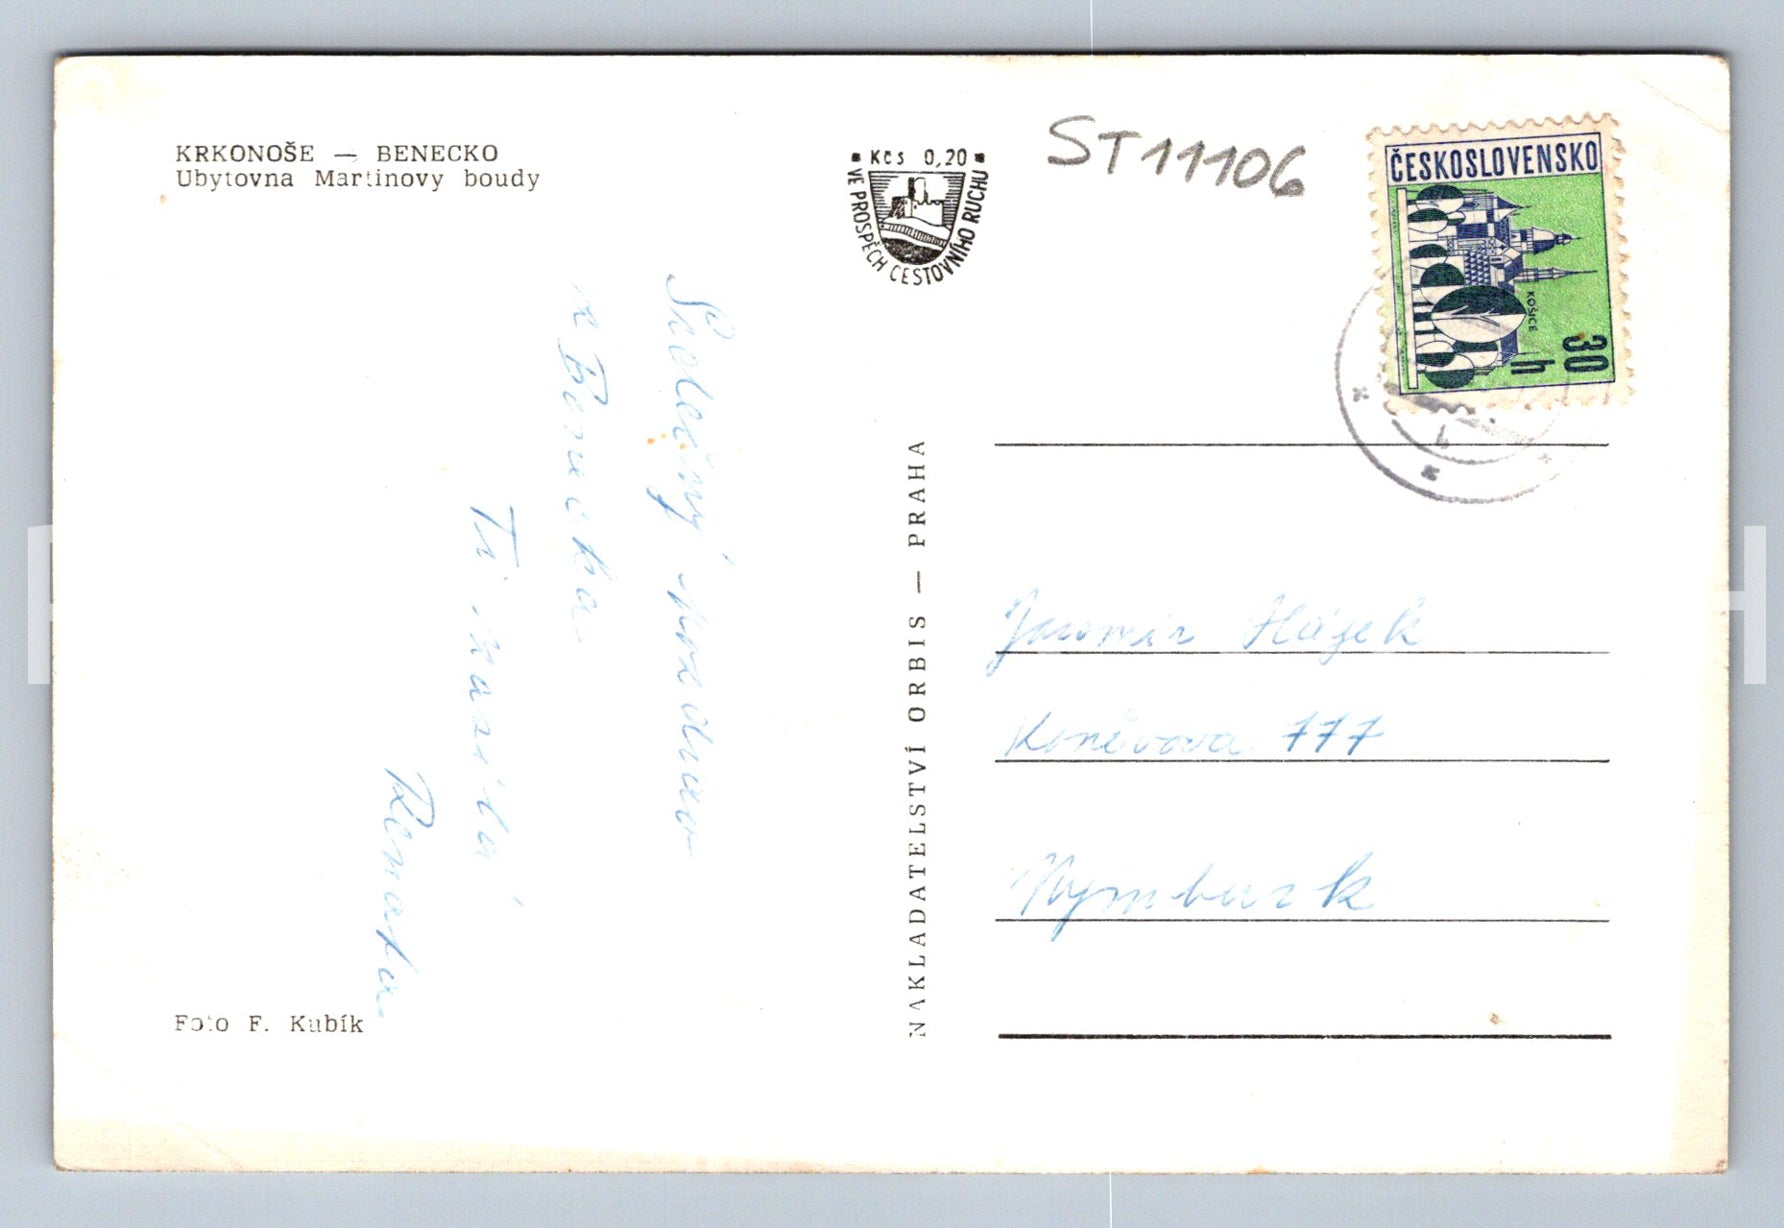 KRKONOŠE — BENECKO
Ubytovna Martinovy boudy
Kčs 0,20
VE PROSPĚCH CESTOVNÍHO RUCHU
ST11106
ČESKOSLOVENSKO
KOŠICE
30
h
Srdečný pozdrav
z Benecka
Ti zasílá
Renata
NAKLADATELSTVÍ ORBIS — PRAHA
Jaromír Hájek
Koněvova 777
Nymburk
Foto F. Kubík